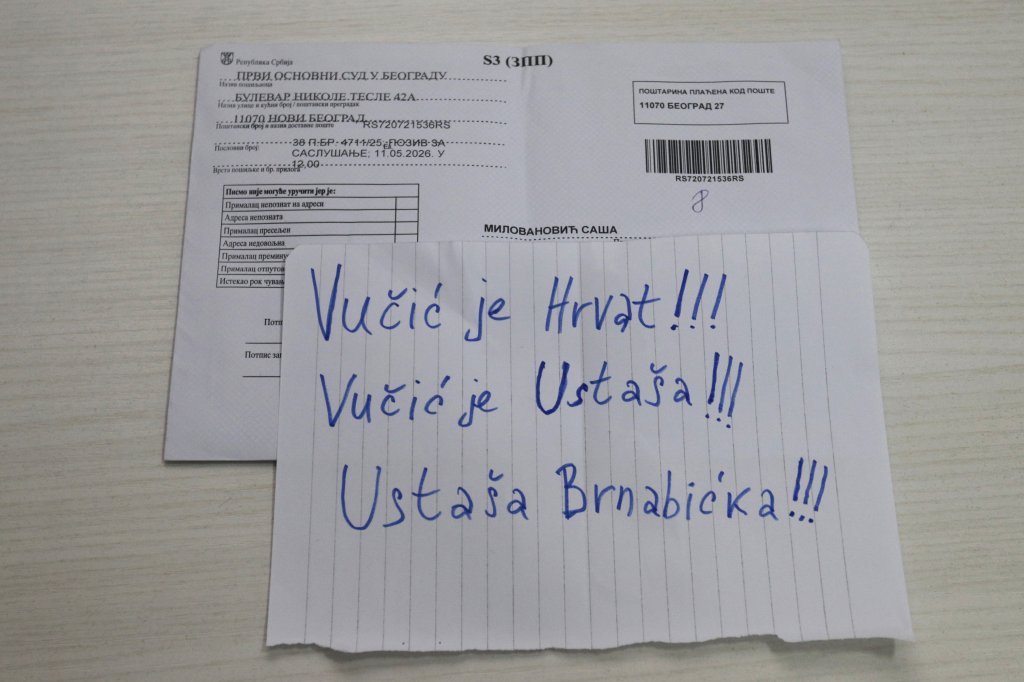 Република Србија
S3 (ЗПП)
ПРВИ ОСНОВНИ СУД У БЕОГРАДУ
Назив пошиљаоца
БУЛЕВАР НИКОЛЕ ТЕСЛЕ 42А
Назив улице и кућни број / поштански преградак
11070 НОВИ БЕОГРАД
Поштански број и назив доставне поште
RS720721536RS
Пословни број:
38 П.БР. 4711/25, ПОЗИВ ЗА
САСЛУШАЊЕ; 11.05.2026. У
12,00
Врста пошиљке и бр. прилога
ПОШТАРИНА ПЛАЋЕНА КОД ПОШТЕ
11070 БЕОГРАД 27
RS720721536RS
8
Писмо није могуће уручити јер је:
Прималац непознат на адреси
Адреса непозната
Прималац пресељен
Адреса недовољна
Прималац преmину
Прималац отпутов
Истекао рок чувањ
Потп
Потпис за
МИЛОВАНОВИЋ САША
Vučić je Hrvat!!!
Vučić je Ustaša!!!
Ustaša Brnabićka!!!